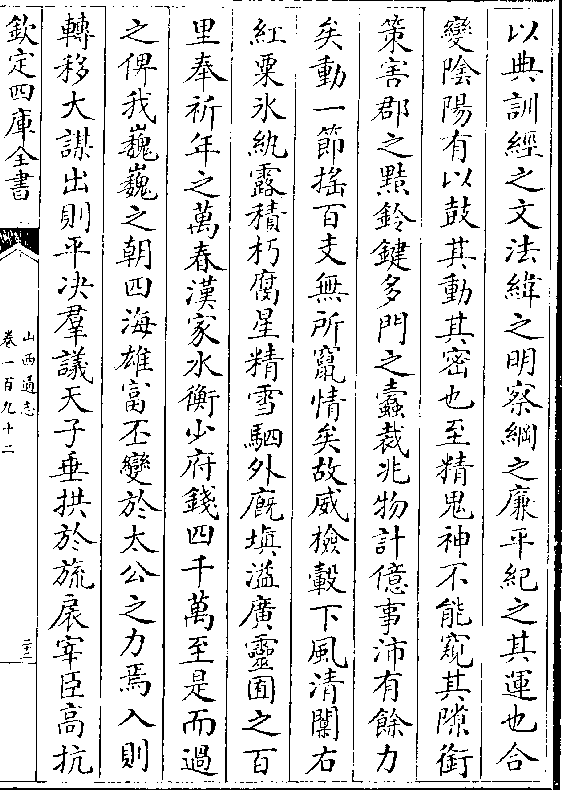 以典訓經之文法緯之明察綱之廉平紀之其運也合
變陰陽有以鼓其動其密也至精鬼神不能窺其隙銜
策害郡之黠鈴鍵多門之蠧裁兆物計億事沛有餘力
矣動一節搖百支無所竄情矣故威檢轂下風清闈右
紅粟氷紈露積朽腐星精雪駟外廐塡溢廣靈囿之百
里奉祈年之萬春漢家水衡少府錢四千萬至是而過
之俾我巍巍之朝四海雄富丕變於太公之力焉入則
轉移大謀出則平决羣議天子垂拱於旒扆宰臣高抗
欽定四庫全書
山西通志
卷一百九十二
二十三